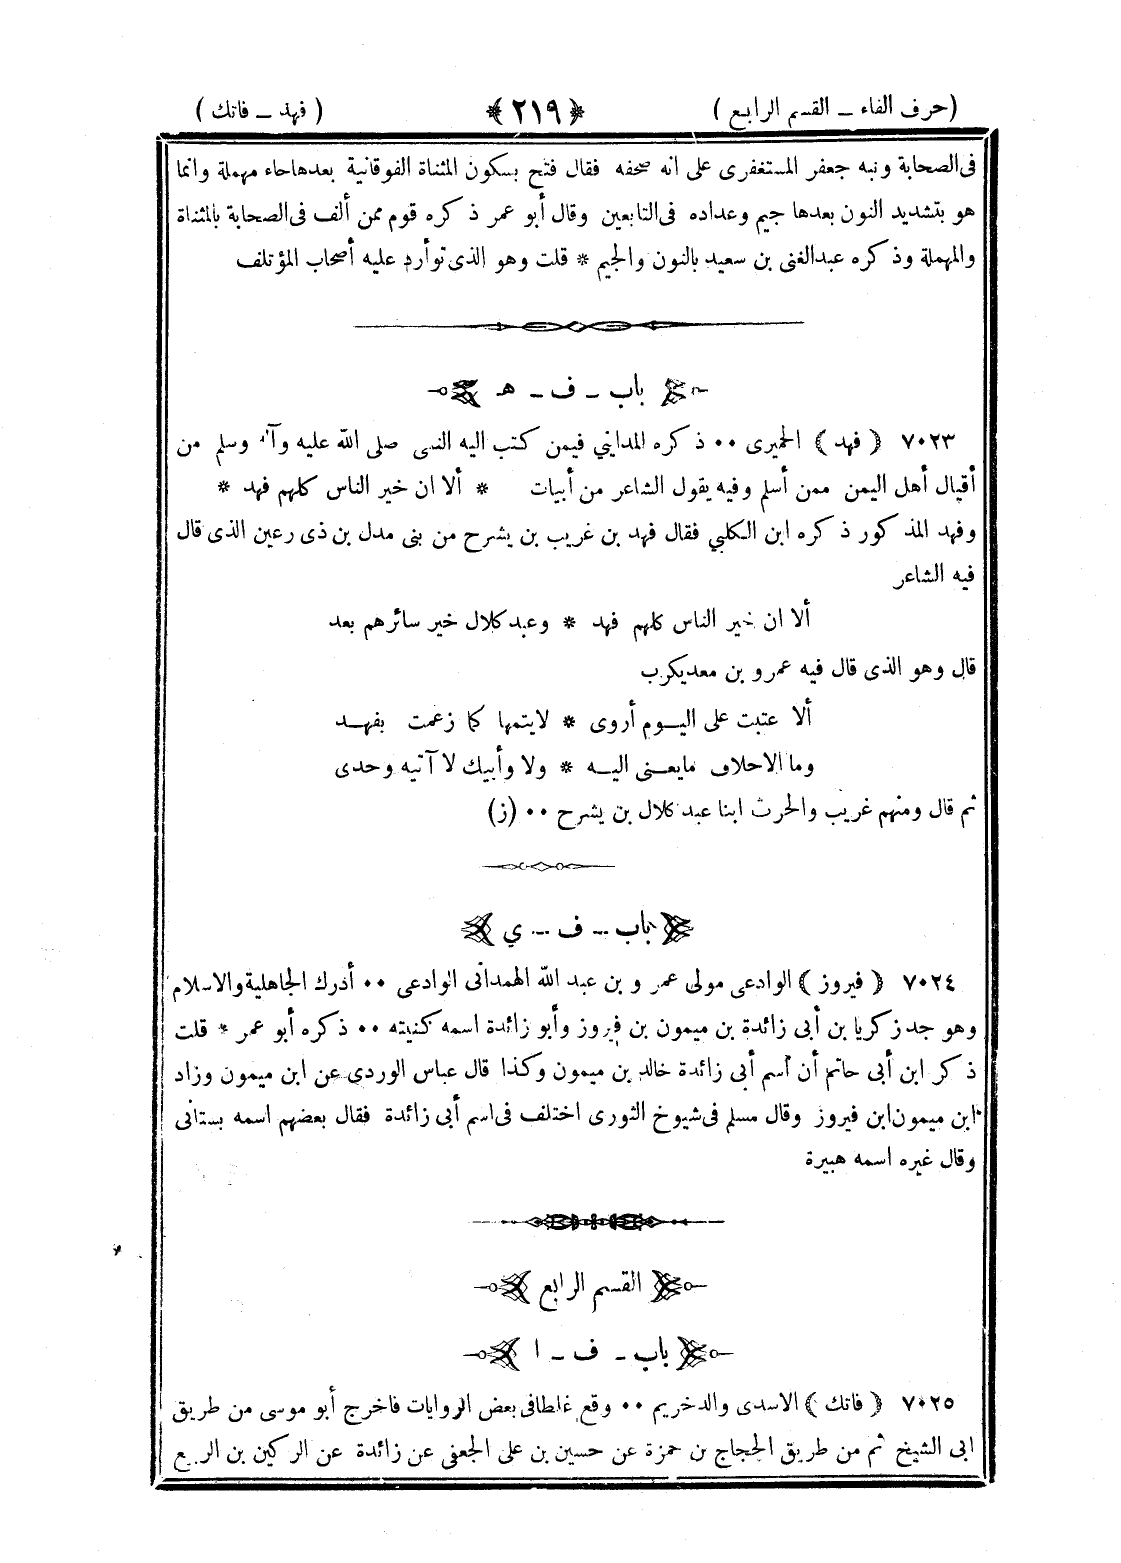 (حرف الفاء ـ القسم الرابع) ﴿٢١٩﴾ (فهد ـ فاتك)
فى الصحابة ونبه جعفر المستغفرى على انه صحفه فقال فتح بسكون المثناة الفوقانية بعدها حاء مهملة وانما
هو بتشديد النون بعدها جيم وعداده فى التابعين وقال أبو عمر ذكره قوم ممن ألف فى الصحابة بالمثناة
والمهملة وذكره عبد الغنى بن سعيد بالنون والجيم * قلت وهو الذى توارد عليه أصحاب المؤتلف
باب ـ ف ـ هـ
٧٠٢٣ (فهد) الحميرى ٠٠ ذكره المدايني فيمن كتب اليه النبى صلى الله عليه وآله وسلم من
أقيال أهل اليمن ممن أسلم وفيه يقول الشاعر من أبيات * ألا ان خير الناس كلهم فهد *
وفهد المذكور ذكره ابن الكلبي فقال فهد بن غريب بن يشرح من بنى مدل بن ذى رعين الذى قال
فيه الشاعر
ألا ان خير الناس كلهم فهد * وعبد كلال خير سائرهم بعد
قال وهو الذى قال فيه عمرو بن معديكرب
ألا عتبت على اليـوم أروى * لايتمها كما زعمت بفهـد
وما الاحلاف مايعـنى اليـه * ولا وأبيك لا آتيه وحدى
ثم قال ومنهم غريب والحرث ابنا عبد كلال بن يشرح ٠٠ (ز)
باب ـ ف ـ ي
٧٠٢٤ (فيروز) الوادعى مولى عمرو بن عبد الله الهمدانى الوادعى ٠٠ أدرك الجاهلية والاسلام
وهو جد زكريا بن أبى زائدة بن ميمون بن فيروز وأبو زائدة اسمه كنيته ٠٠ ذكره أبو عمر * قلت
ذكر ابن أبى حاتم أن أسم أبى زائدة خالد بن ميمون وكذا قال عباس الوردي عن ابن ميمون وزاد
ابن ميمون ابن فيروز وقال مسلم فى شيوخ الثورى اختلف فى اسم أبى زائدة فقال بعضهم اسمه بستانى
وقال غيره اسمه هبيرة
القسم الرابع
باب ـ ف ـ ا
٧٠٢٥ (فاتك) الاسدى والد خريم ٠٠ وقع غلطا فى بعض الروايات فاخرج أبو موسى من طريق
ابى الشيخ ثم من طريق الحجاج بن حمزة عن حسين بن على الجعفى عن زائدة عن الركين بن الربيع